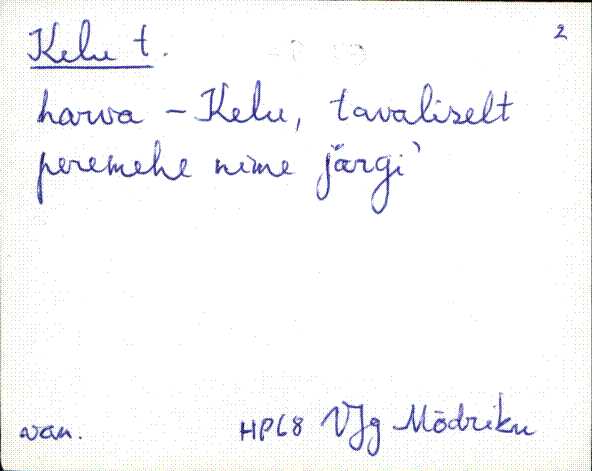 Kelu t. 2
harva - Kelu, tavaliselt
peremehe nime järgi
van. HP68 VJg Mõdriku